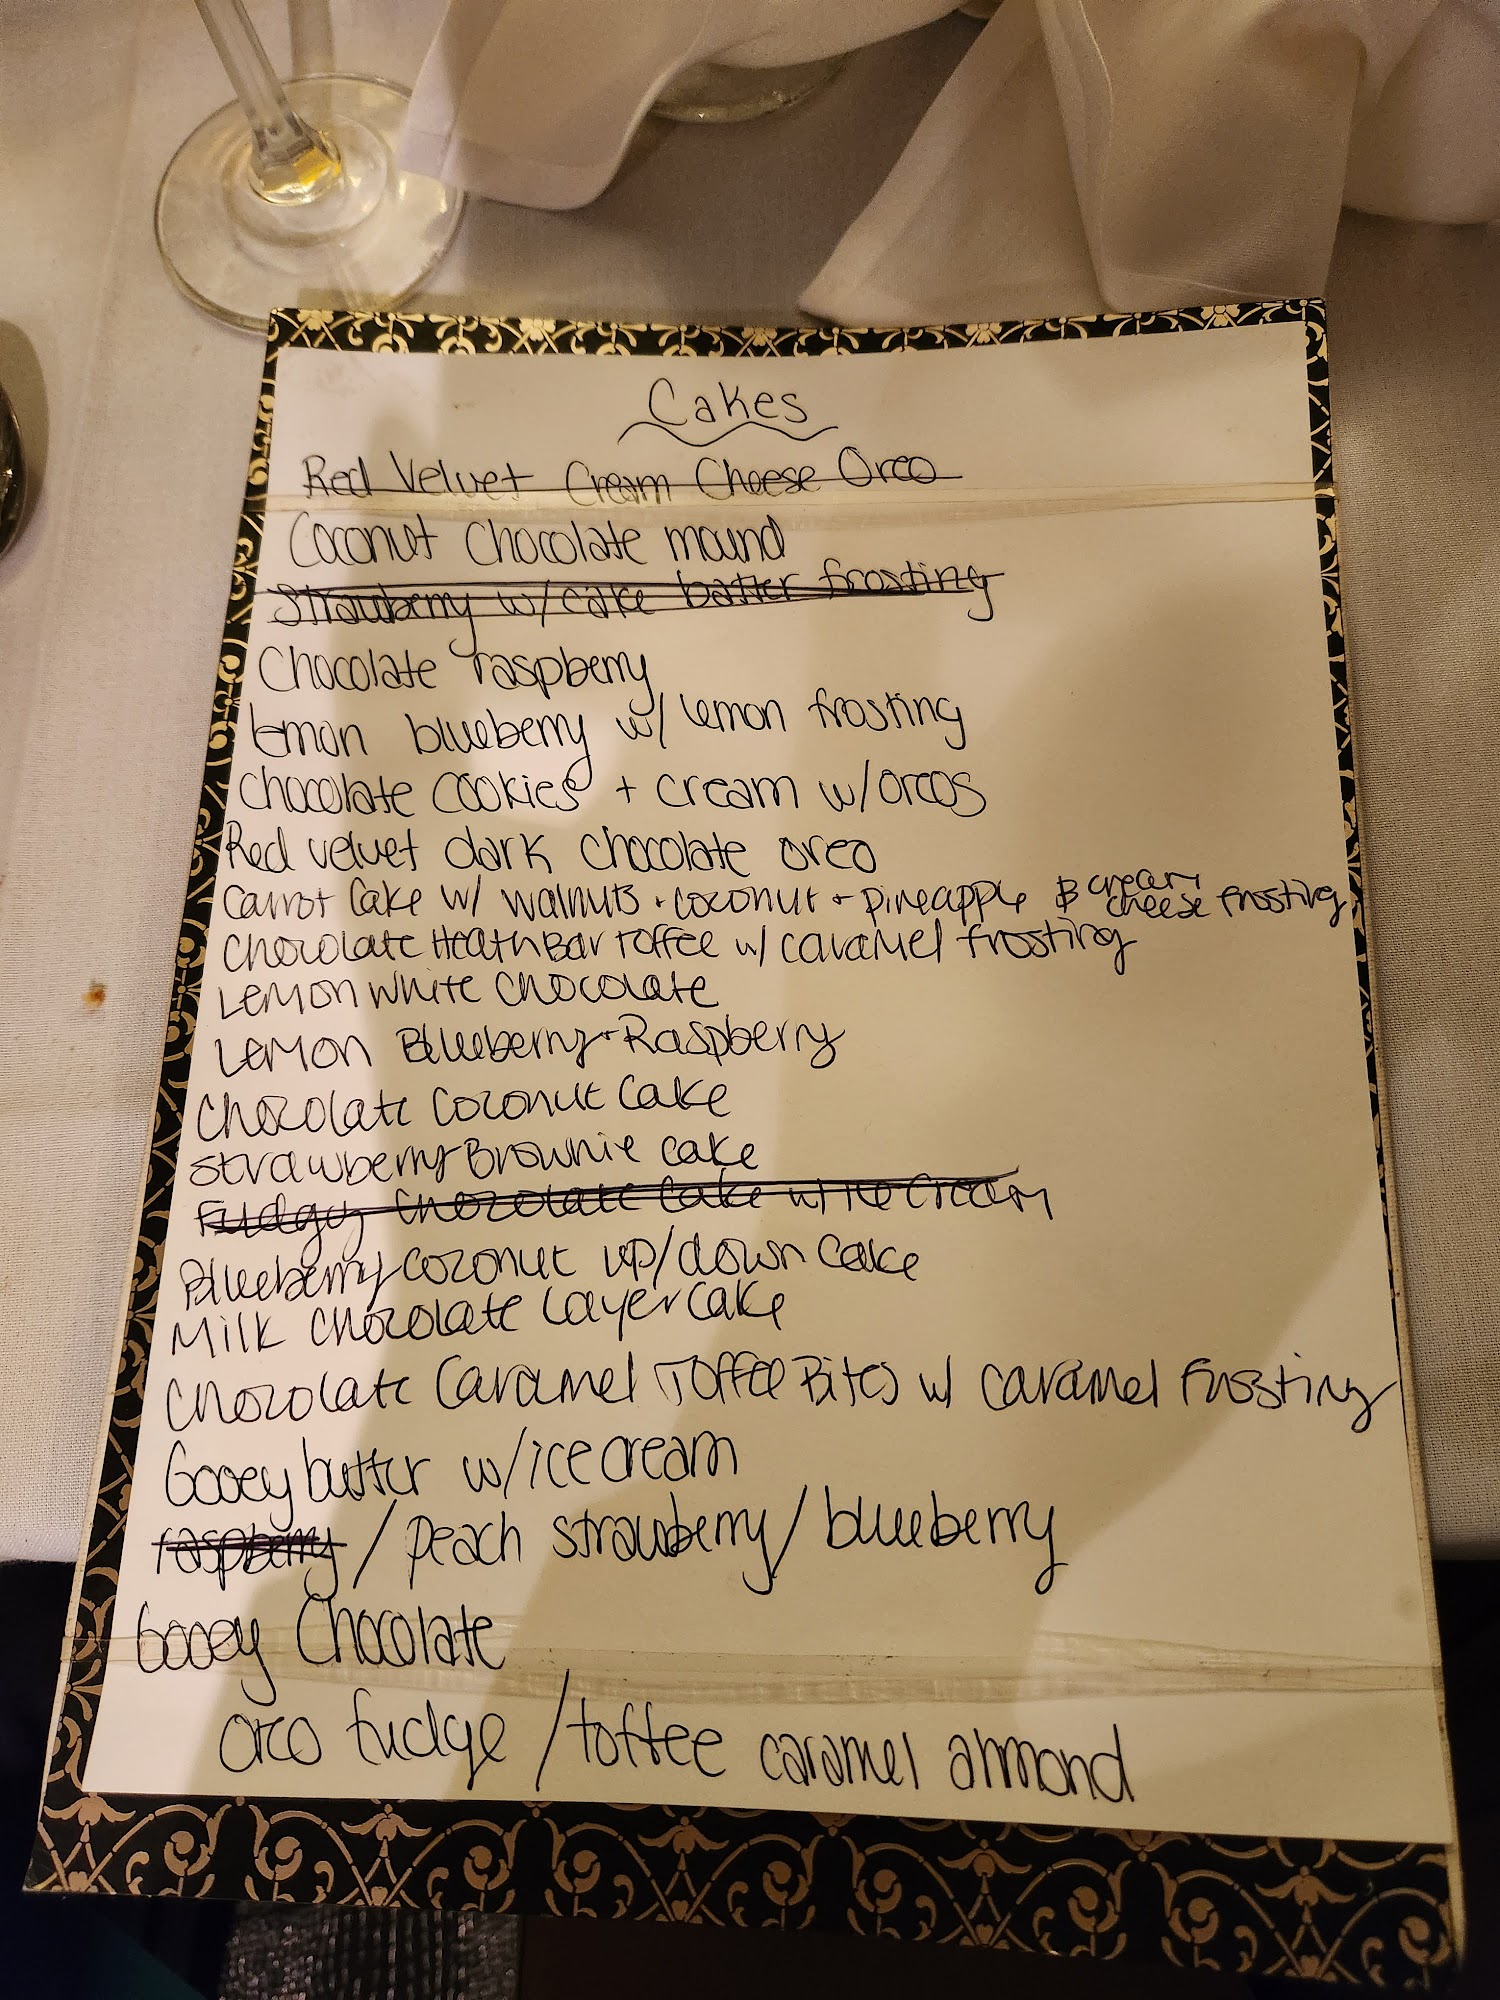 Cakes
Red Velvet Cream Cheese Oreo
Coconut Chocolate mound
Strawberry w/ cake batter frosting
Chocolate raspberry
lemon blueberry w/ lemon frosting
Chocolate Cookies + cream w/ oreos
Red velvet dark chocolate oreo
Carrot Cake w/ walnuts + coconut + pineapple & cream cheese frosting
Chocolate Heath Bar Toffee w/ caramel frosting
Lemon White Chocolate
Lemon Blueberry + Raspberry
Chocolate Coconut Cake
Strawberry Brownie cake
Fudgy Chocolate Cake w/ ice cream
Blueberry coconut up/down cake
Milk Chocolate Layer Cake
Chocolate Caramel Toffee Bites w/ caramel Frosting
Gooey butter w/ ice cream
raspberry / peach strawberry / blueberry
Gooey Chocolate
oreo fudge / toffee caramel almond